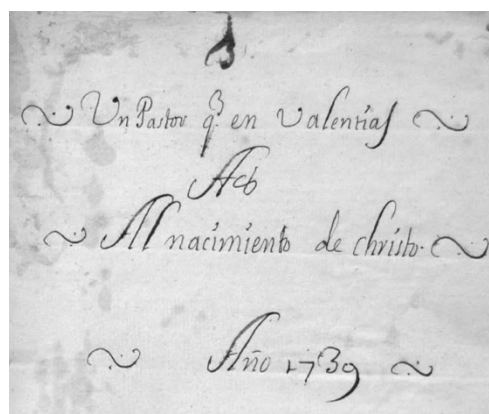 Un Pastor q^e en valentias
Al nacimiento de christo.
Año 1739